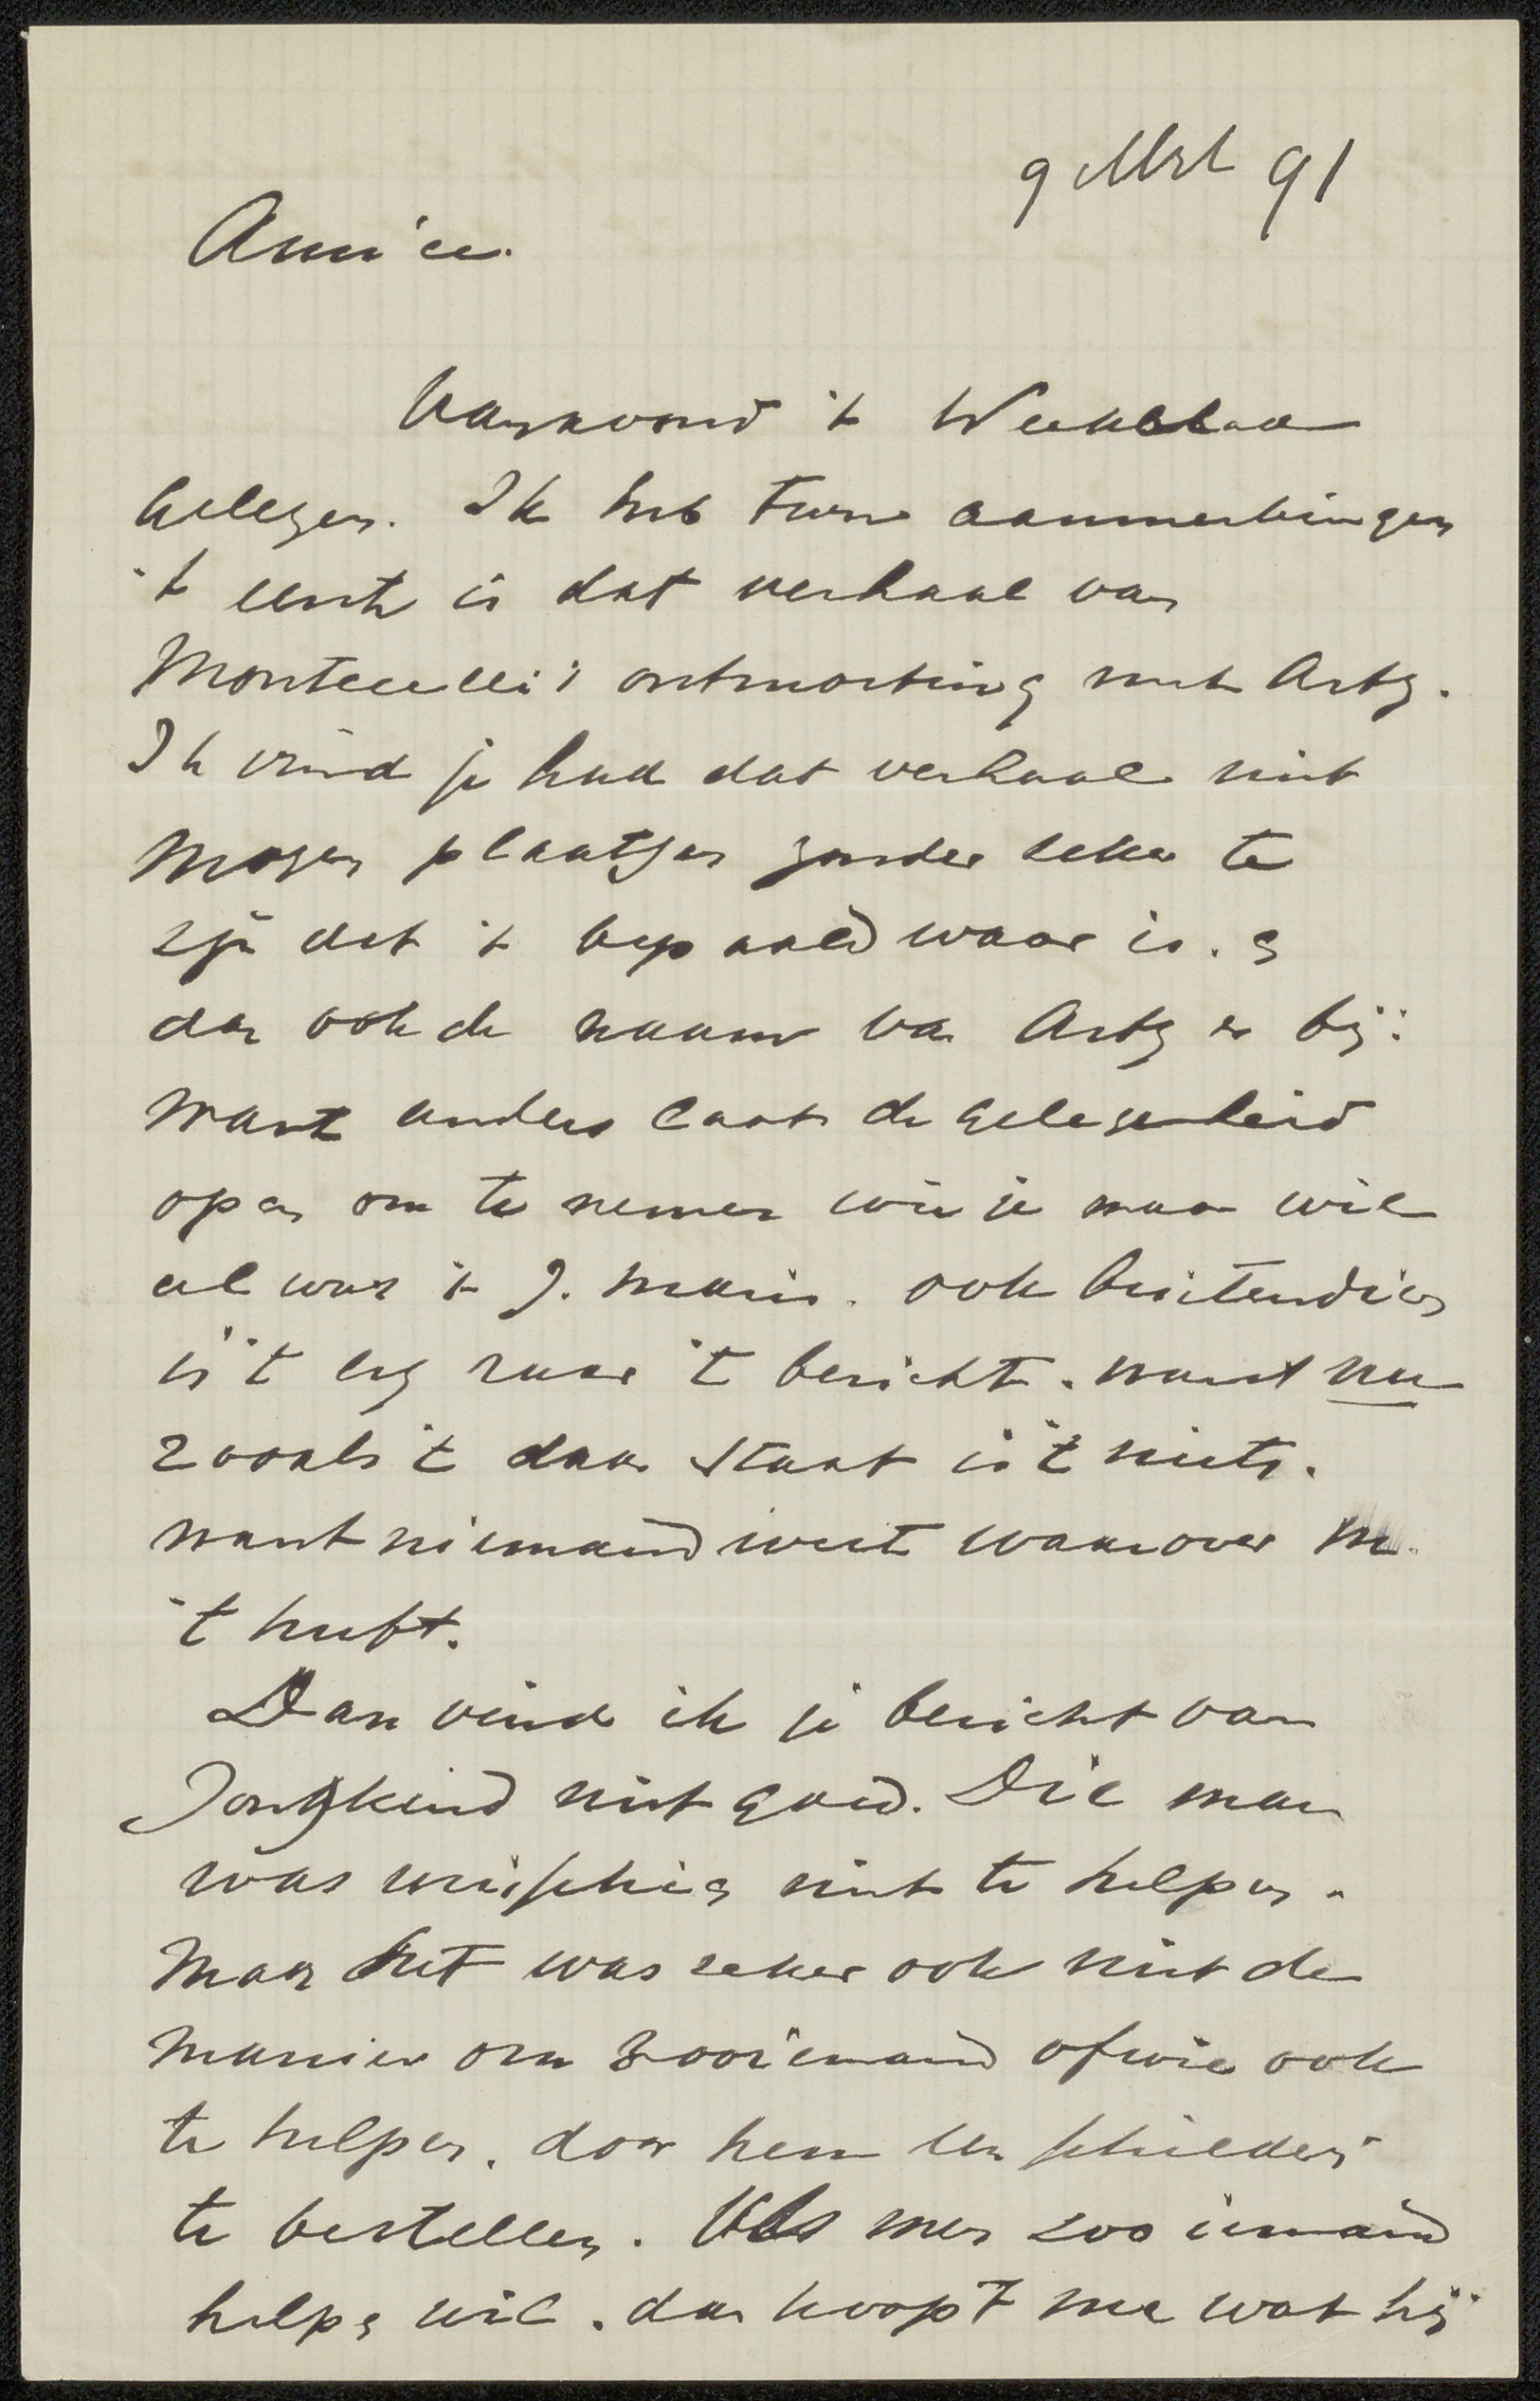 9 Mrt 91
Amice.
Vanavond 't Weekblad
gelezen. Ik heb twee aanmerkingen
't eerste is dat verhaal van
Montecelli's ontmoeting met Artz.
Ik vind je had dat verhaal niet
mogen plaatsen zonder zeker te
zijn dat 't bepaald waar is. en
dan ook de naam van Artz er bij.
want anders laat de gelegenheid
open om te nemen wie je maar wil
al was 't J. Maris. ook buitendien
is 't erg raar 't bericht. want nu
zooals 't daar staat is 't niets.
want niemand weet waarover M.
't heeft.
Dan vind ik je bericht van
Jongkind niet goed. Die man
was misschien niet te helpen.
Maar het was zeker ook niet de
manier om zooiemand of wie ook
te helpen. door hem een schilderij
te bestellen. Als men zoo iemand
helpen wil. dan koopt me wat hij